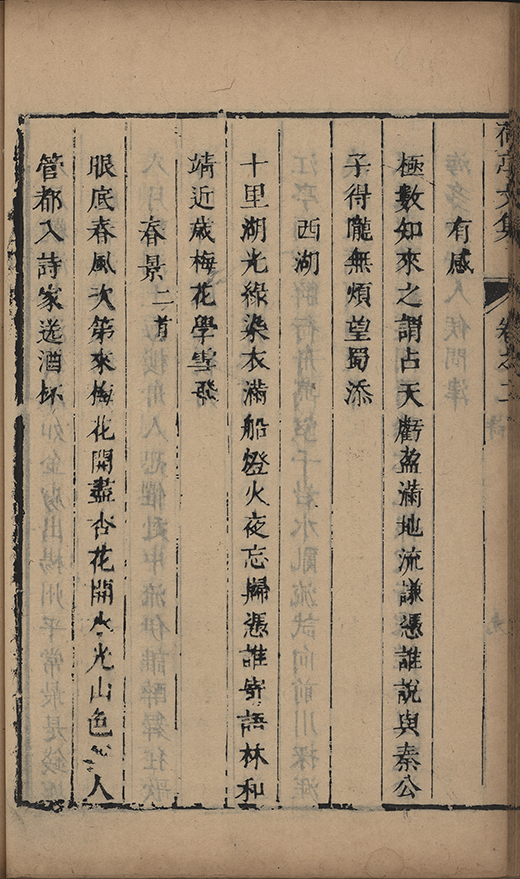 荷亭文集 卷之二
有感
極數知來之謂占天虧盈滿地流謙憑誰說與秦公
子得隴無煩望蜀添
西湖
十里湖光綠染衣滿船燈火夜忘歸憑誰寄語林和
靖近歲梅花學雪飛
春景二首
眼底春風次第來梅花開盡杏花開水光山色 人
管都入詩家送酒杯